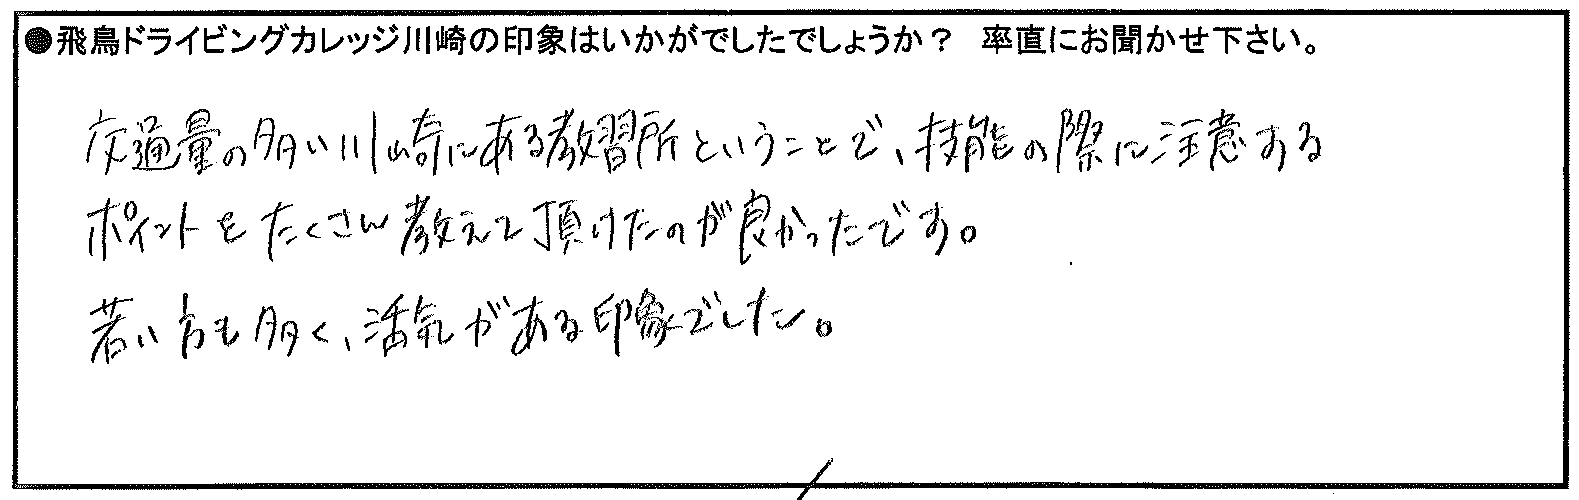 ●飛鳥ドライビングカレッジ川崎の印象はいかがでしたでしょうか？ 率直にお聞かせ下さい。
交通量の多い川崎にある教習所ということで、技能の際に注意する
ポイントをたくさん教えて頂けたのが良かったです。
若い方も多く、活気がある印象でした。